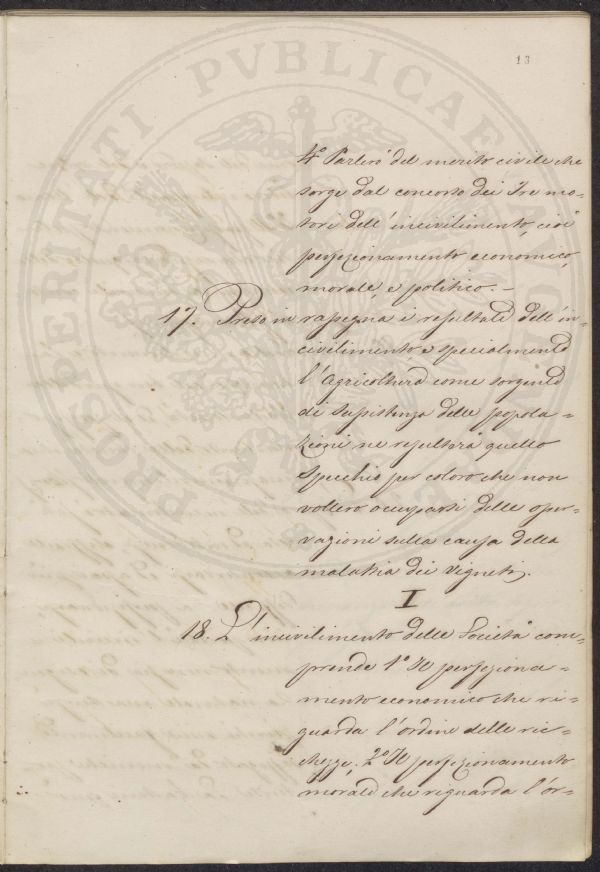 13
4° Parlerò del merito civile che
sorge dal concorso dei Tre mo-
tori dell'incivilimento, cioè
perfezionamento economico,
morale, e politico. -
17. Preso in rassegna i resultati dell'in-
civilimento, e specialmente
l'Agricoltura come sorgente
di sussistenza delle popola-
zioni ne resulterà quello
Specchio per coloro che non
vollero occuparsi delle osser-
vazioni sulla causa della
malattia dei vigneti.
I
18. L'incivilimento delle Società com-
prende 1° Il perfeziona-
mento economico che ri-
guarda l'ordine delle ric-
chezze. 2° Il perfezionamento
morale che riguarda l'or-
PROSPERITATI PVBLICAE